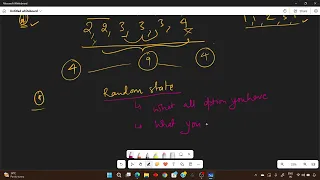 Microsoft Whiteboard
Untitled whiteboard
2, 2, 3, 3, 3, 4
4 9 4
Random state
↳ What all option you have
↳ What you